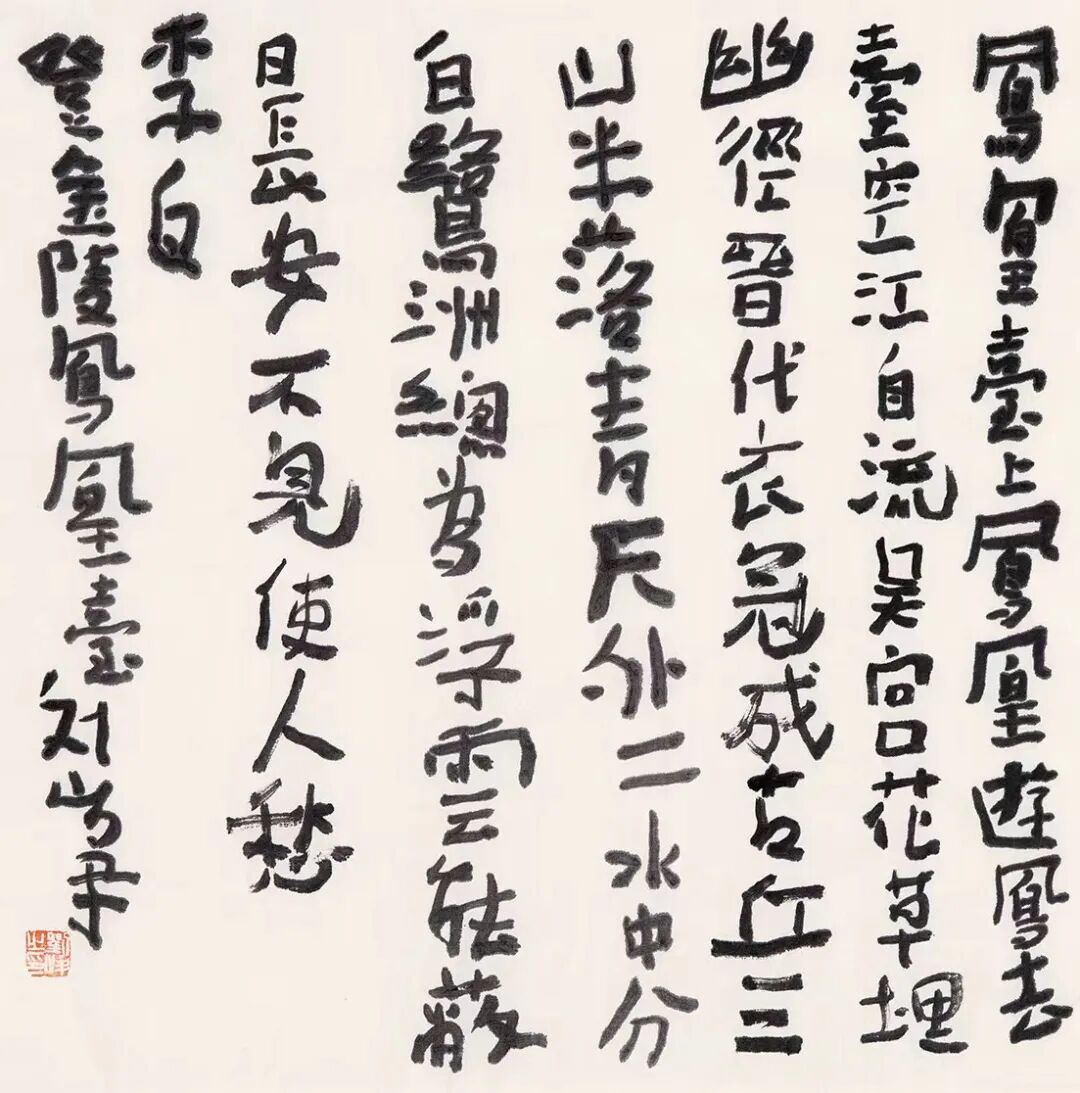 鳳凰臺上鳳凰遊鳳去
臺空江自流吳宮花草埋
幽徑晉代衣冠成古丘三
山半落青天外二水中分
白鷺洲總為浮雲能蔽
日長安不見使人愁
李白
登金陵鳳凰臺刘